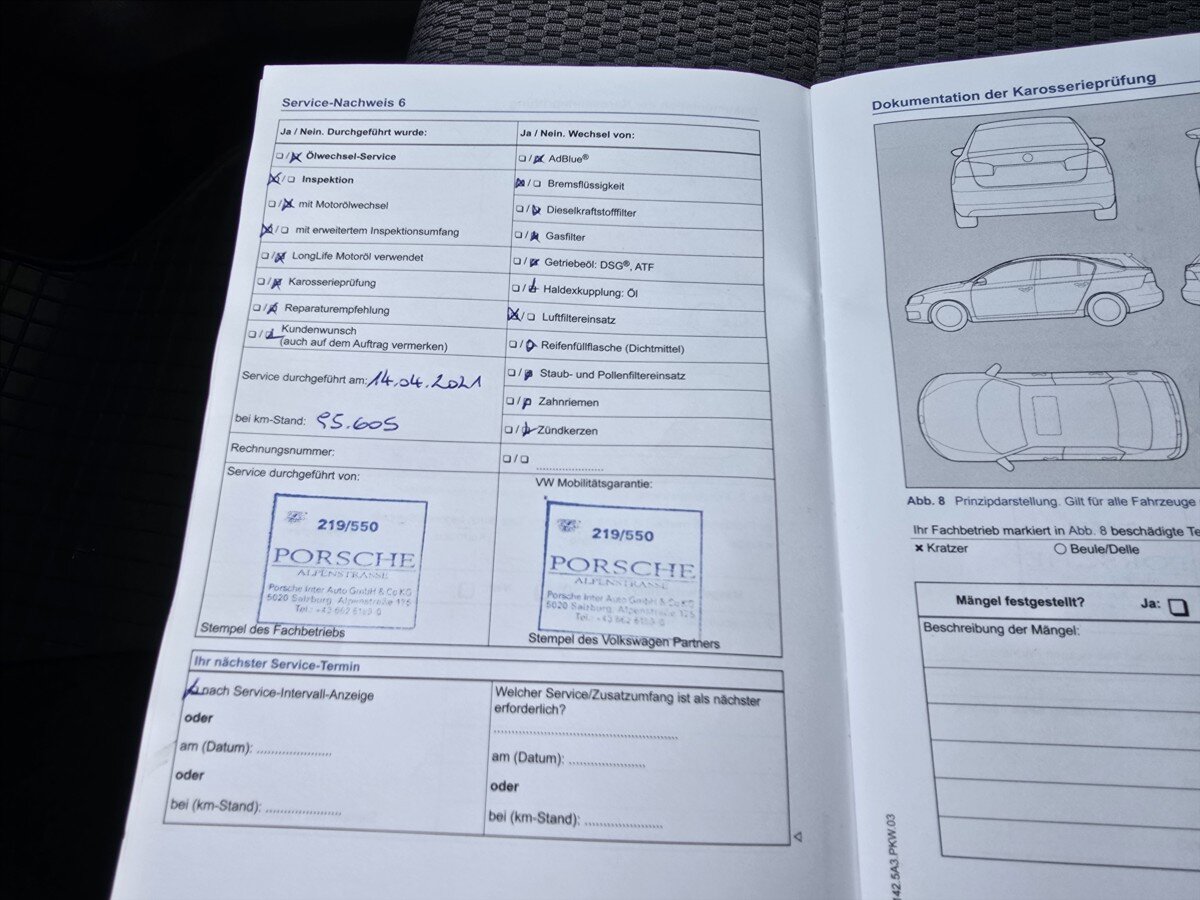 Service-Nachweis 6
Ja / Nein. Durchgeführt wurde:
Ölwechsel-Service
Inspektion
mit Motorölwechsel
mit erweitertem Inspektionsumfang
LongLife Motoröl verwendet
Karosserieprüfung
Reparaturempfehlung
Kundenwunsch
(auch auf dem Auftrag vermerken)
Service durchgeführt am: 14.04.2021
bei km-Stand: 95.605
Rechnungsnummer:
Service durchgeführt von:
219/550
PORSCHE
ALPENSTRASSE
Porsche Inter Auto GmbH & Co KG
5020 Salzburg, Alpenstraße 175
Stempel des Fachbetriebs
Ja / Nein. Wechsel von:
AdBlue®
Bremsflüssigkeit
Dieselkraftstofffilter
Gasfilter
Getriebeöl: DSG®, ATF
Haldexkupplung: Öl
Luftfiltereinsatz
Reifenfüllflasche (Dichtmittel)
Staub- und Pollenfiltereinsatz
Zahnriemen
Zündkerzen
VW Mobilitätsgarantie:
219/550
PORSCHE
ALPENSTRASSE
Porsche Inter Auto GmbH & Co KG
5020 Salzburg, Alpenstraße 175
Stempel des Volkswagen Partners
Ihr nächster Service-Termin
nach Service-Intervall-Anzeige
oder
am (Datum):
oder
bei (km-Stand):
Welcher Service/Zusatzumfang ist als nächster
erforderlich?
am (Datum):
oder
bei (km-Stand):
Dokumentation der Karosserieprüfung
Abb. 8 Prinzipdarstellung. Gilt für alle Fahrzeuge
Ihr Fachbetrieb markiert in Abb. 8 beschädigte Te
× Kratzer
Beule/Delle
Mängel festgestellt?
Ja:
Beschreibung der Mängel:
142.5A3.PKW.03